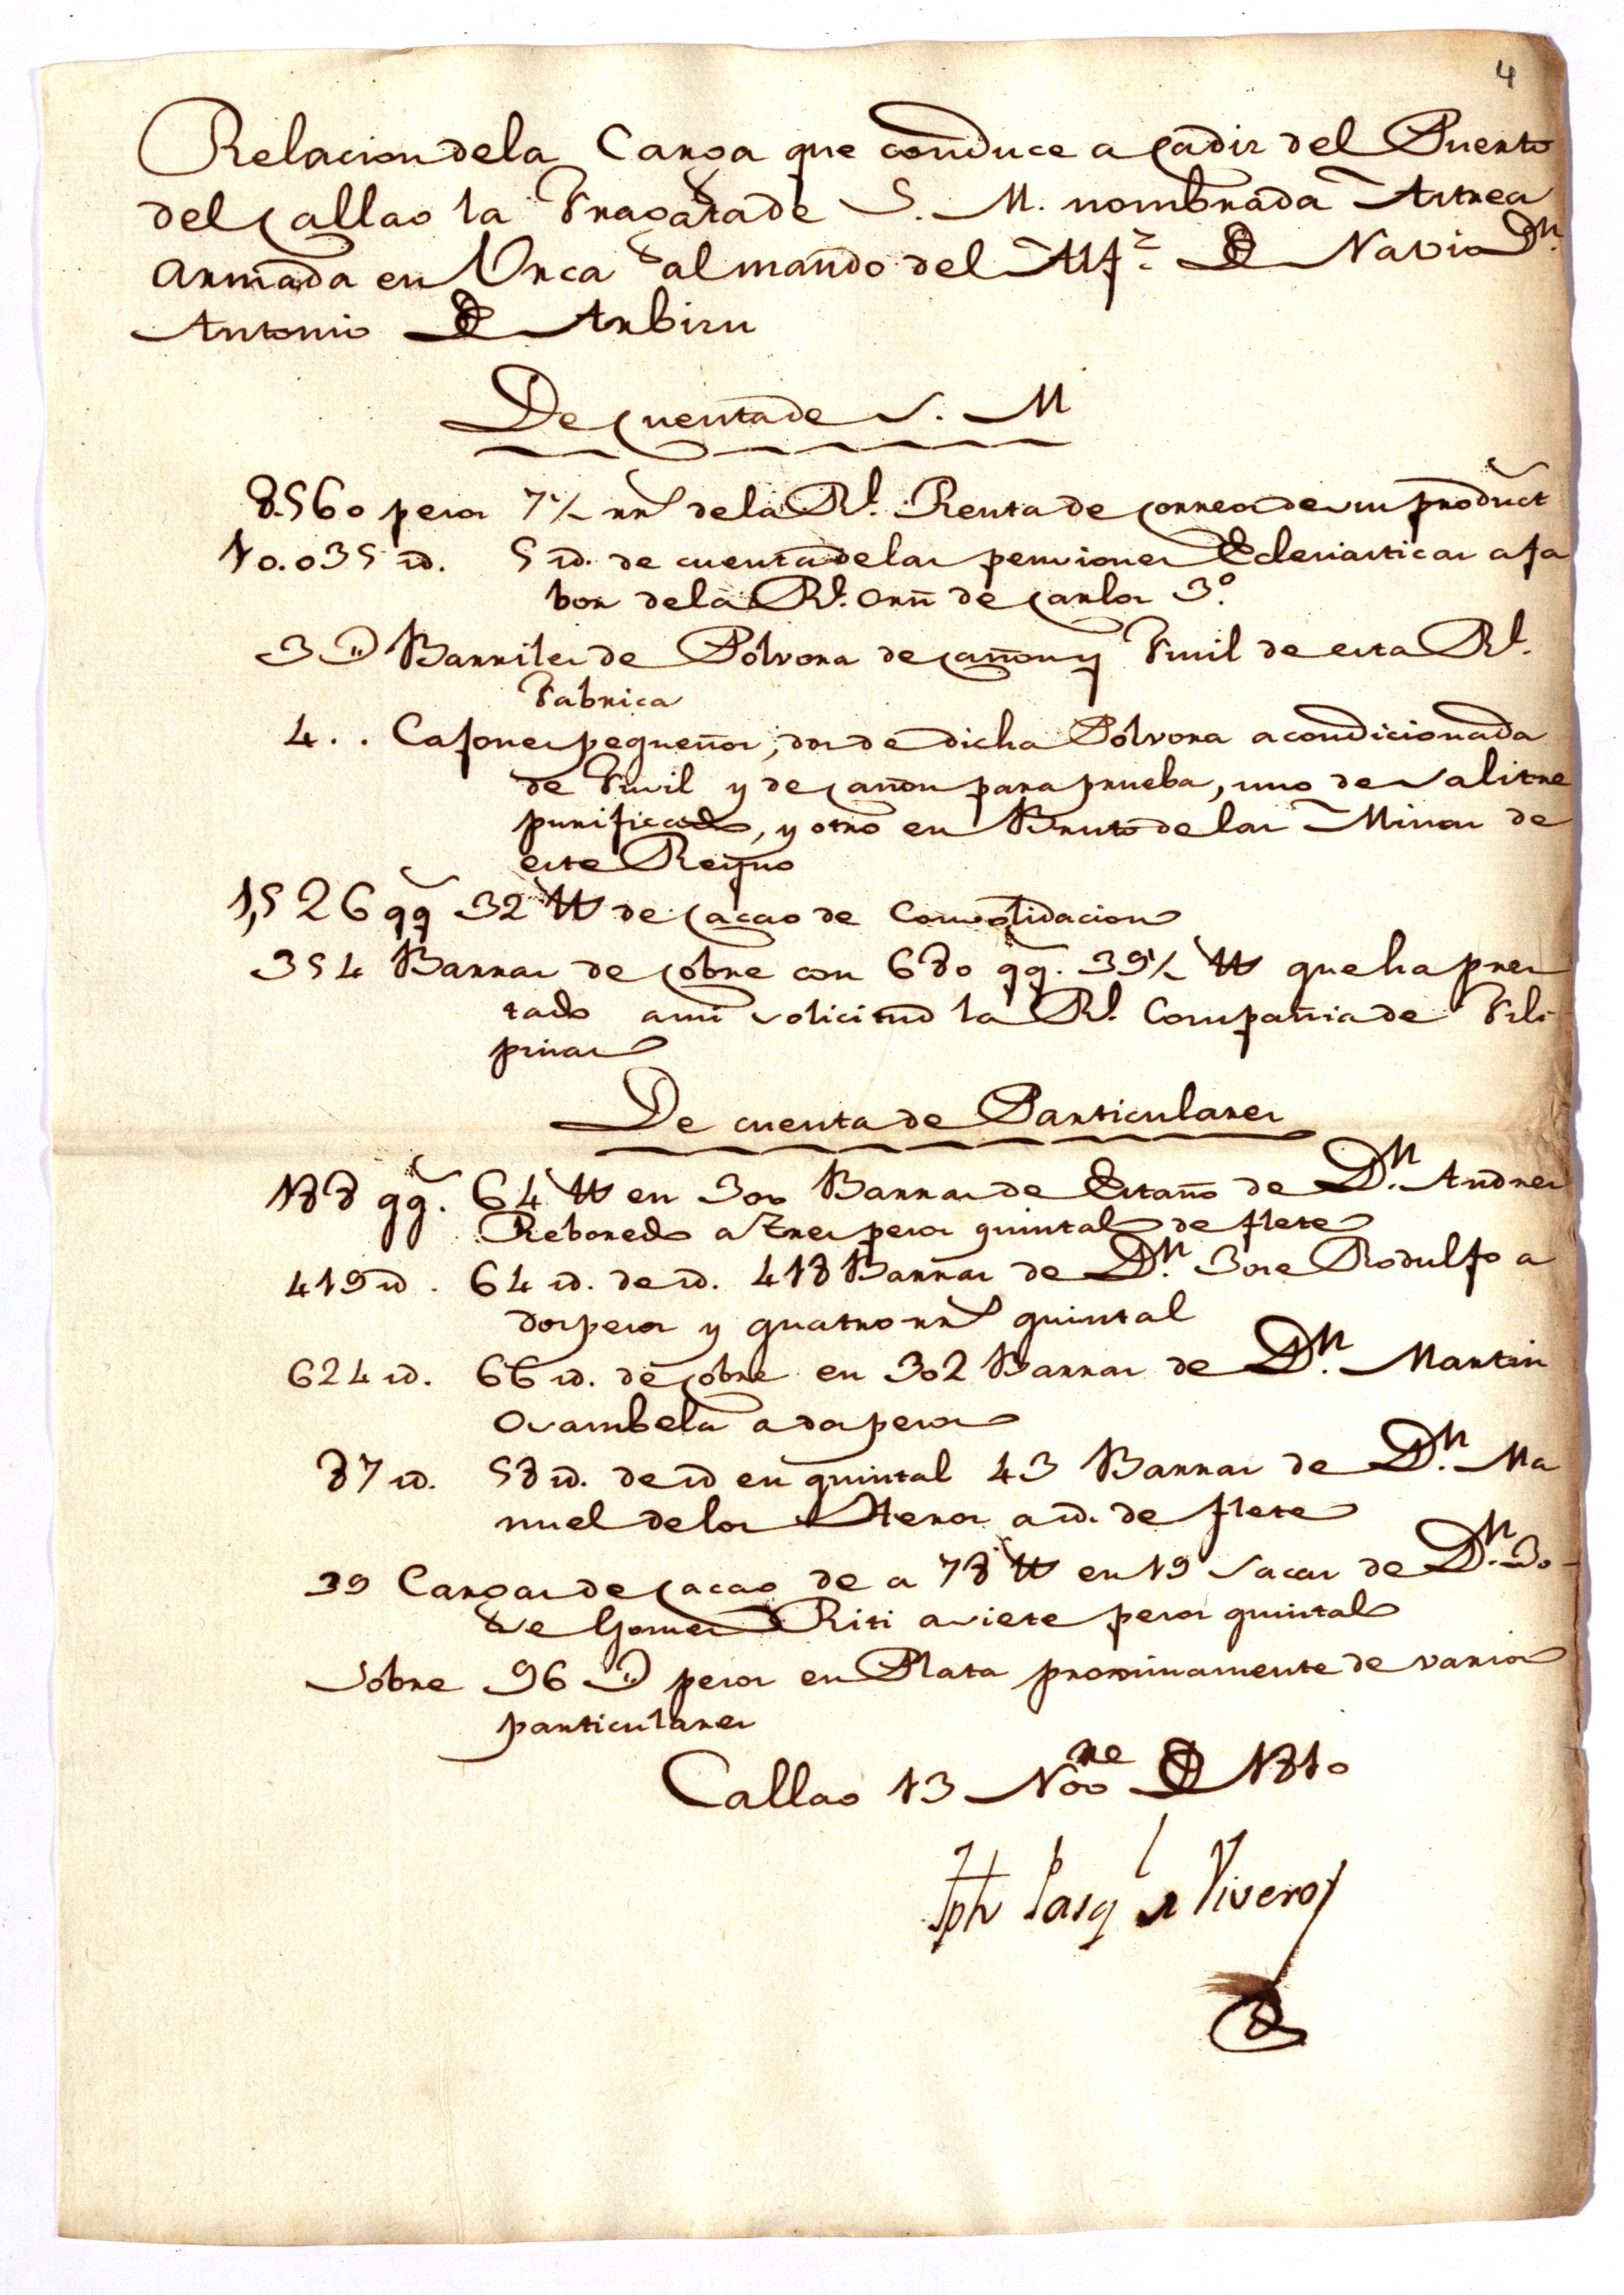 4
Relacion dela Carga que conduce a Cadiz del Puerto
del Callao la Fragata de S. M. nombrada Astrea
armada en Urca al mando del Alf.z de Navio Dn.
Antonio de Arbiru
De Cuenta de S. M
8.560 pesos 7½ rrs dela Rl. Renta de Correos de su product
10.035 id. 5 id. de cuenta delas pensiones Eclesiasticas a fa
bor dela Rl. orn de Carlos 3º.
3 D Barriles de Polvora de Cañon y Fusil de esta Rl.
Fabrica
4.. Cajones pequeños, dos de dicha Polvora acondicionada
de Fusil y de Cañon para prueba, uno de salitre
purificado, y otro en Bruto de las Minas de
este Reyno
1,526 qq 32 tt de Cacao de Consolidacion
354 Barras de Cobre con 680 qq. 39½ tt que ha pres
tado a mi solicitud la Rl. Compañia de Fili
pinas
De cuenta de Particulares
188 qq. 64 tt en 300 Barras de Estaño de Dn. Andres
Reboredo a tres pesos quintal de flete
419 id. 64 id. de id. 418 Barras de Dn. Jose Rodulfo a
dos pesos y quatro rrs quintal
624 id. 66 id. de Cobre en 302 Barras de Dn. Martin
Osambela a dos pesos
87 id. 58 id. de id en quintal 43 Barras de Dn. Ma
nuel delos Heros a id. de flete
39 Cargas de Cacao de a 78 tt en 19 sacas de Dn. Jo-
se Gomes Riti a siete pesos quintal
Sobre 96 D pesos en Plata proximamente de varios
particulares
Callao 13 Nove de 1810
Jph Pasql de Vivero